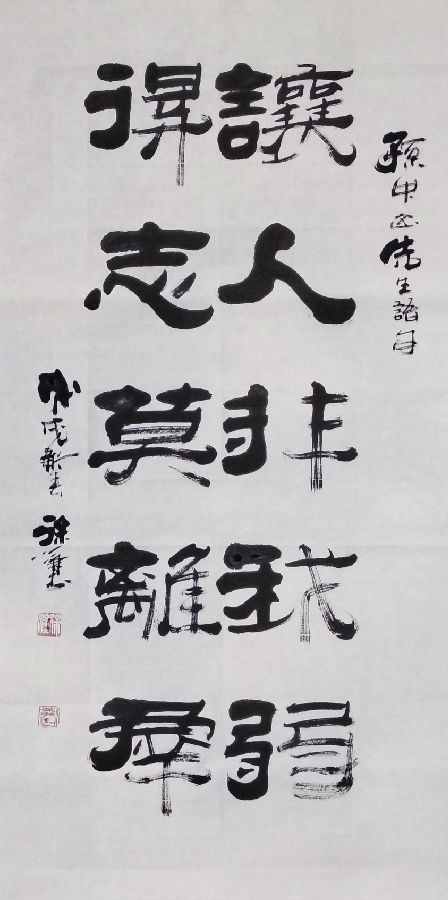 孫中山先生語句
讓人非我弱
得志莫離羣
戊戌新春